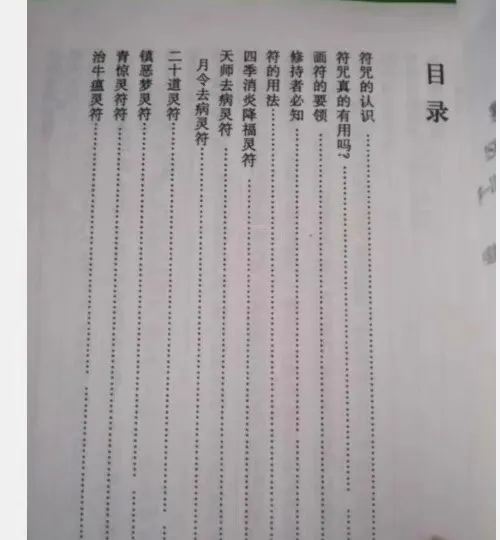 目录
符咒的认识
符咒真的有用吗?
画符的要领
修持者必知
符的用法
四季消炎降福灵符
天师去病灵符
月令去病灵符
二十道灵符
镇恶梦灵符
青惊灵符符
治牛瘟灵符